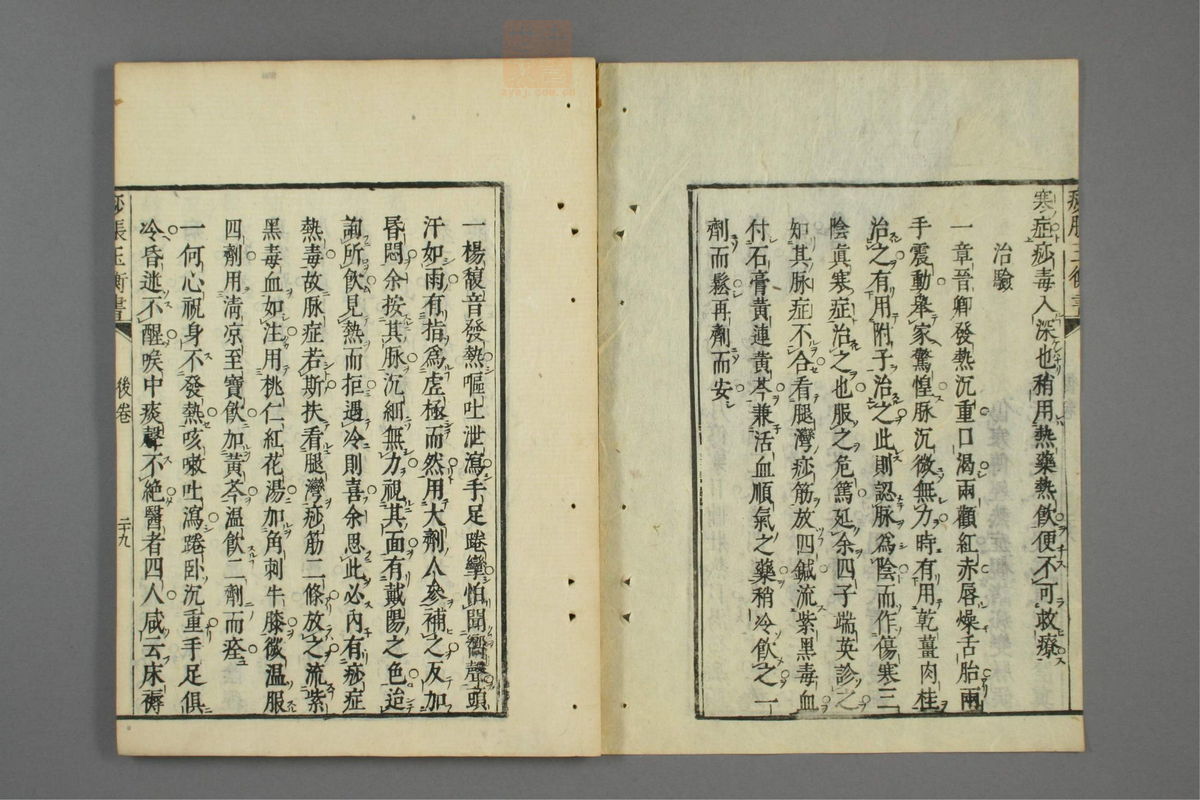 寒症痧毒入深也稍用熱藥熱飲便不可救療
治驗
一章晉卿發熱沉重口渴兩顴紅赤唇燥舌胎兩
手震動舉家驚惶脉沉微無力時有用乾薑肉桂
治之有用附子治之此則認脉為陰而作傷寒三
陰真寒症治之也服之危篤延余四子端英診之
知其脉症不合看腿灣痧筋放四鍼流紫黑毒血
付石膏黃連黃芩兼活血順氣之藥稍冷飲之一
劑而鬆再劑而安
一楊馥音發熱嘔吐泄瀉手足踡攣怕聞響聲頭
汗如雨有指為虛極而然用大劑人參補之反加
昏悶余按其脉沉細無力視其面有戴陽之色迨
詢所飲見熱而拒遇冷則喜余思此必內有痧症
熱毒故脉症若斯扶看腿灣痧筋二條放之流紫
黑毒血如注用桃仁紅花湯加角刺牛膝微温服
四劑用清凉至寶飲加黃芩温飲二劑而痊
一何心視身不發熱咳嗽吐瀉踡臥沉重手足俱
冷昏迷不醒喉中痰聲不絕醫者四人咸云床褥
痧脹玉衡書
後卷
二十九